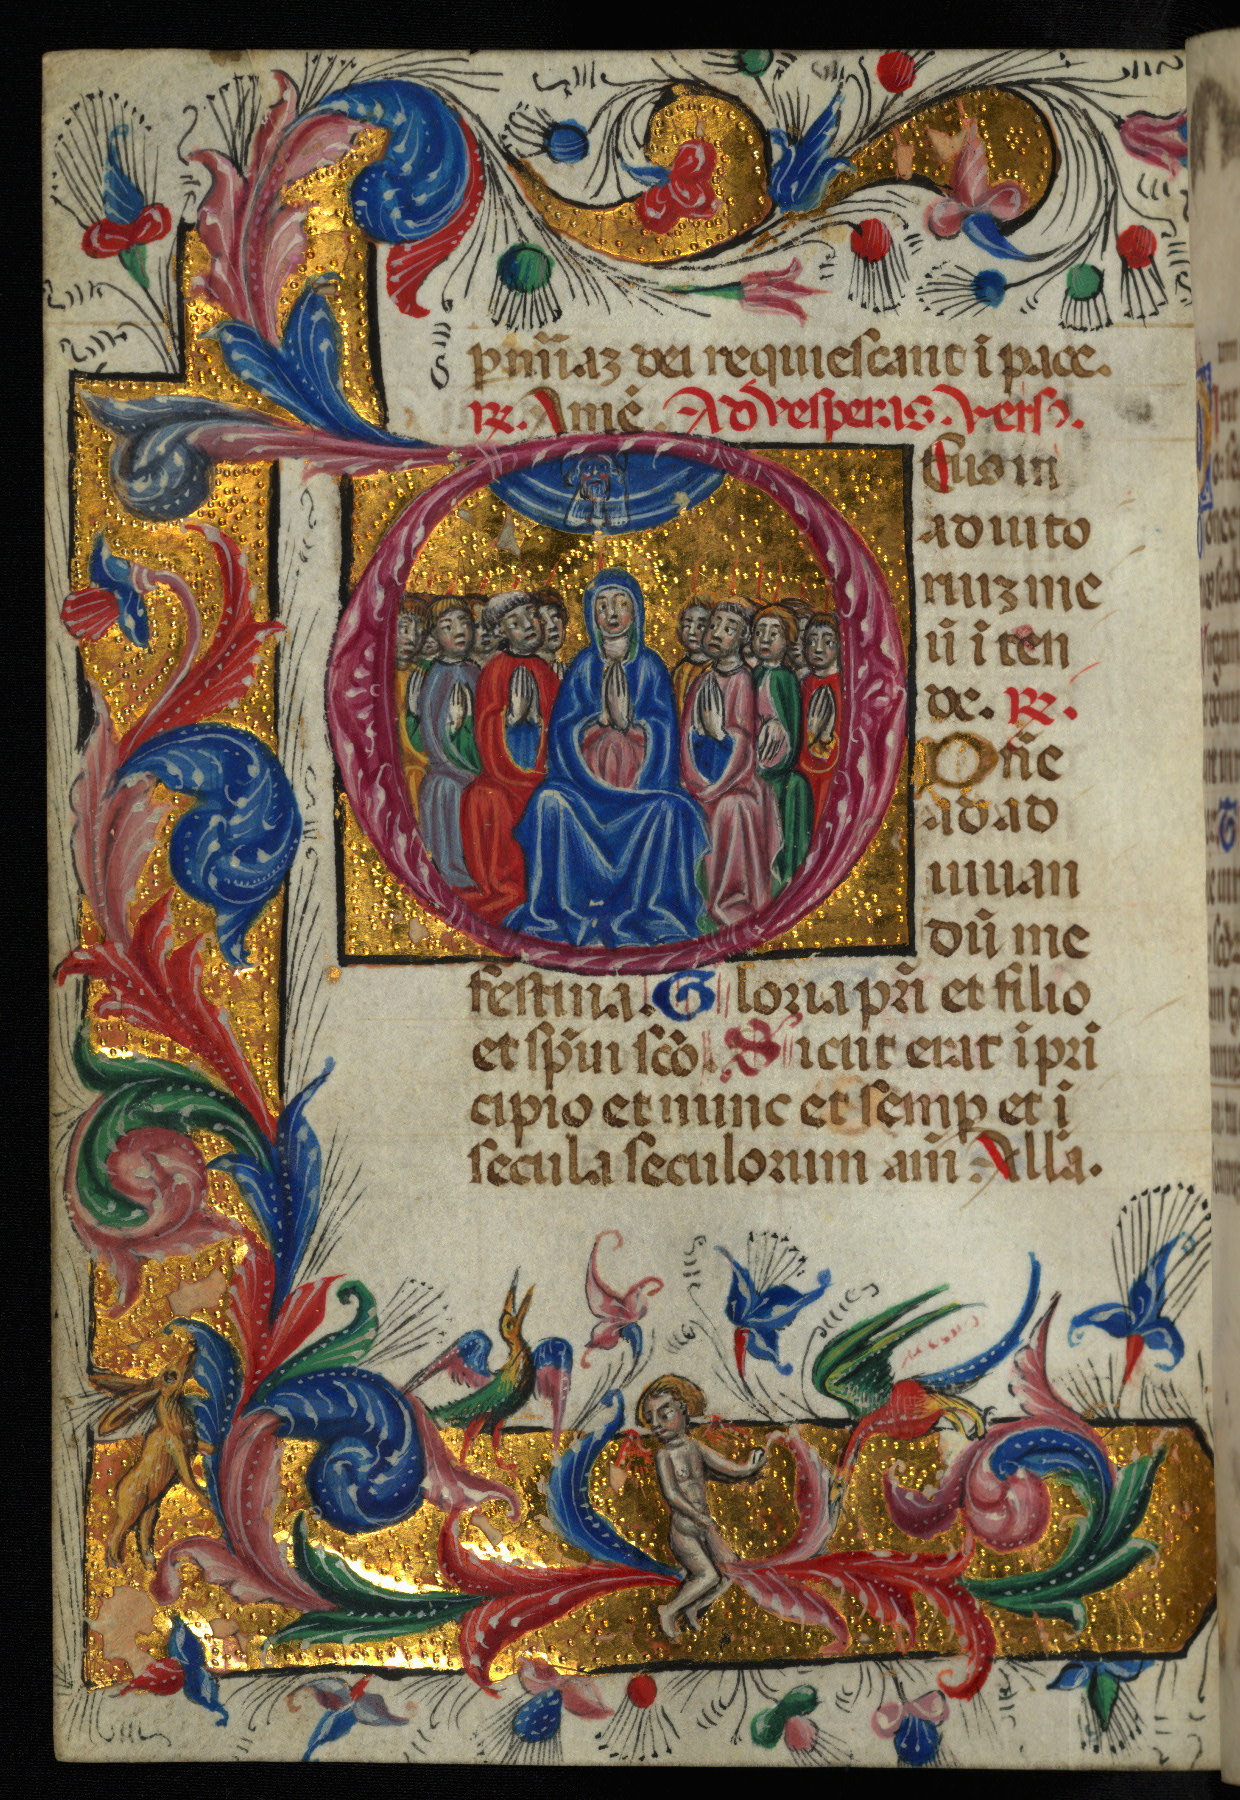 p̄nīaʒ dei requiescant ī pace.
℟. Amē. Ad vesperas. vers̄.
Eus in
adiuto
riuʒ me
ū ī ten
de. ℟.
Dn̄e
ad ad
iuuan
dū me
festina. Gloria pr̄i et filio
et sp̄ui sc̄o. Sicut erat ī pri
cipio et nunc et semp et ī
secula seculorum am̄ Alla.